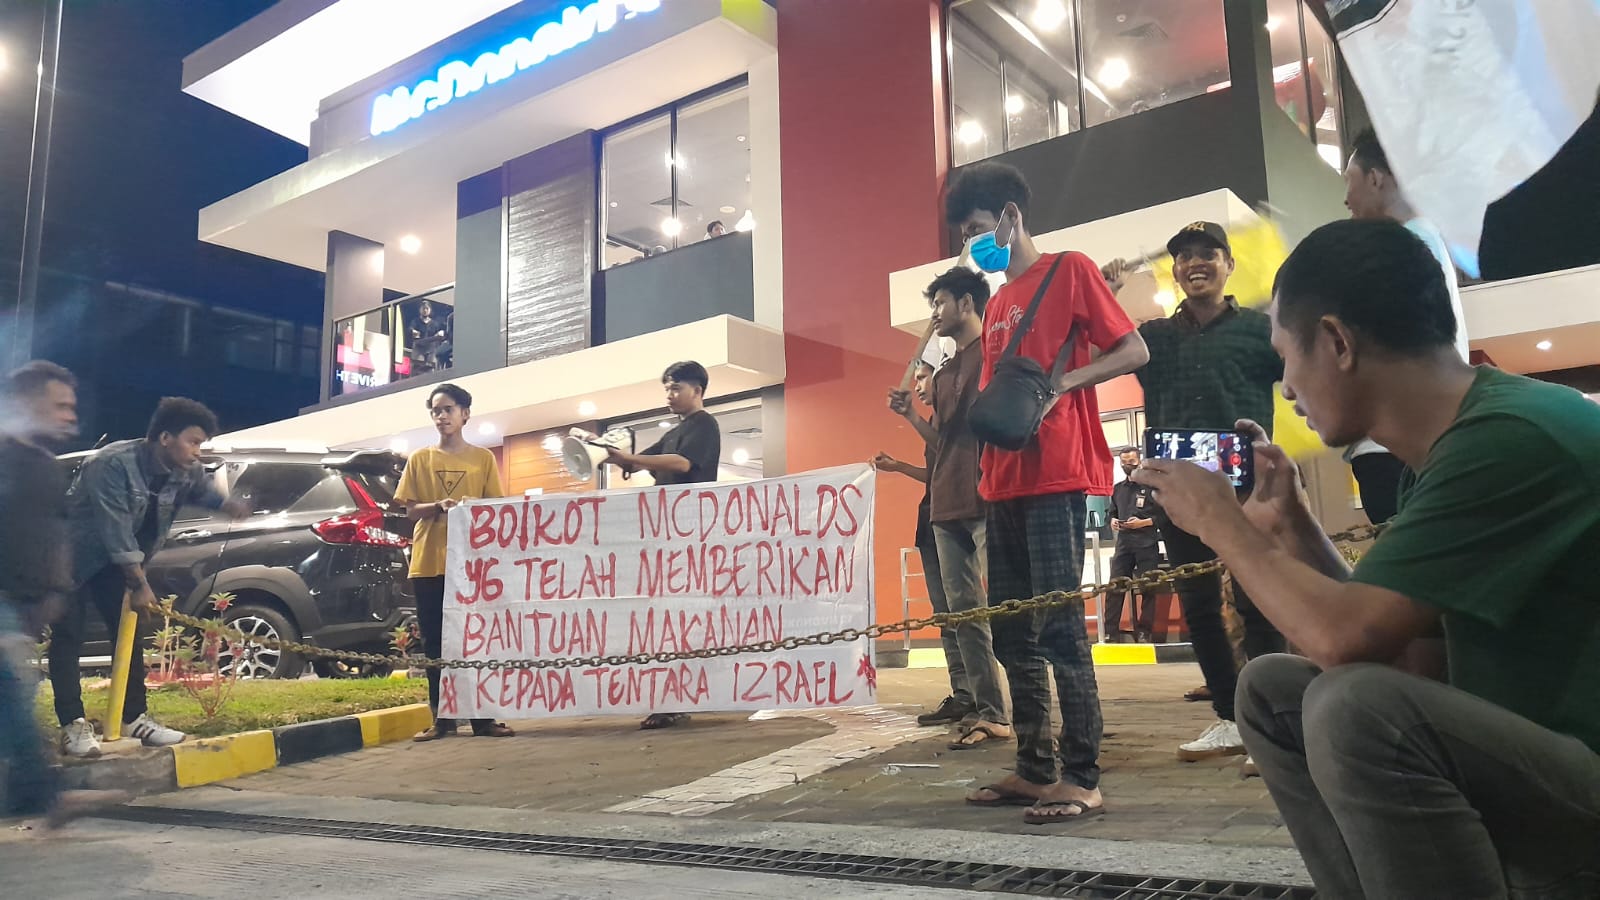 McDonald's
BOIKOT MCDONALDS
YG TELAH MEMBERIKAN
BANTUAN MAKANAN
# KEPADA TENTARA IZRAEL #